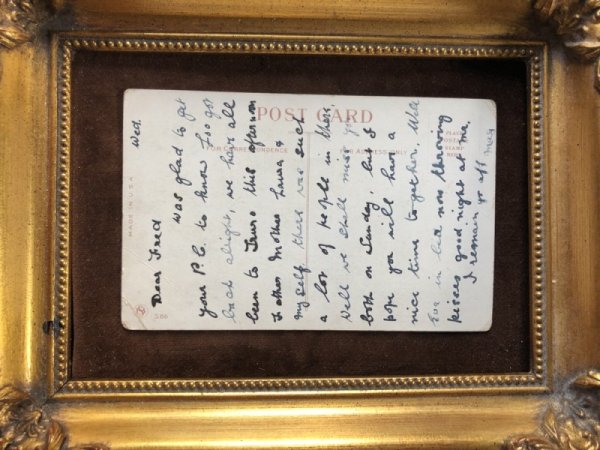 POST CARD
FOR CORRESPONDENCE
FOR ADDRESS ONLY
PLACE
STAMP
HERE
MADE IN U.S.A
Wed.
Dear Fred
was glad to get
your P.C. to know you got
back alright, we have all
been to Truro this afternoon
Father Mother Laura &
myself there was such
a lot of people in there,
Well we shall miss you
both on Sunday, but I
hope you will have a
nice time together. Well
Eva in bed now throwing
kisses good night at me.
I remain yr aff